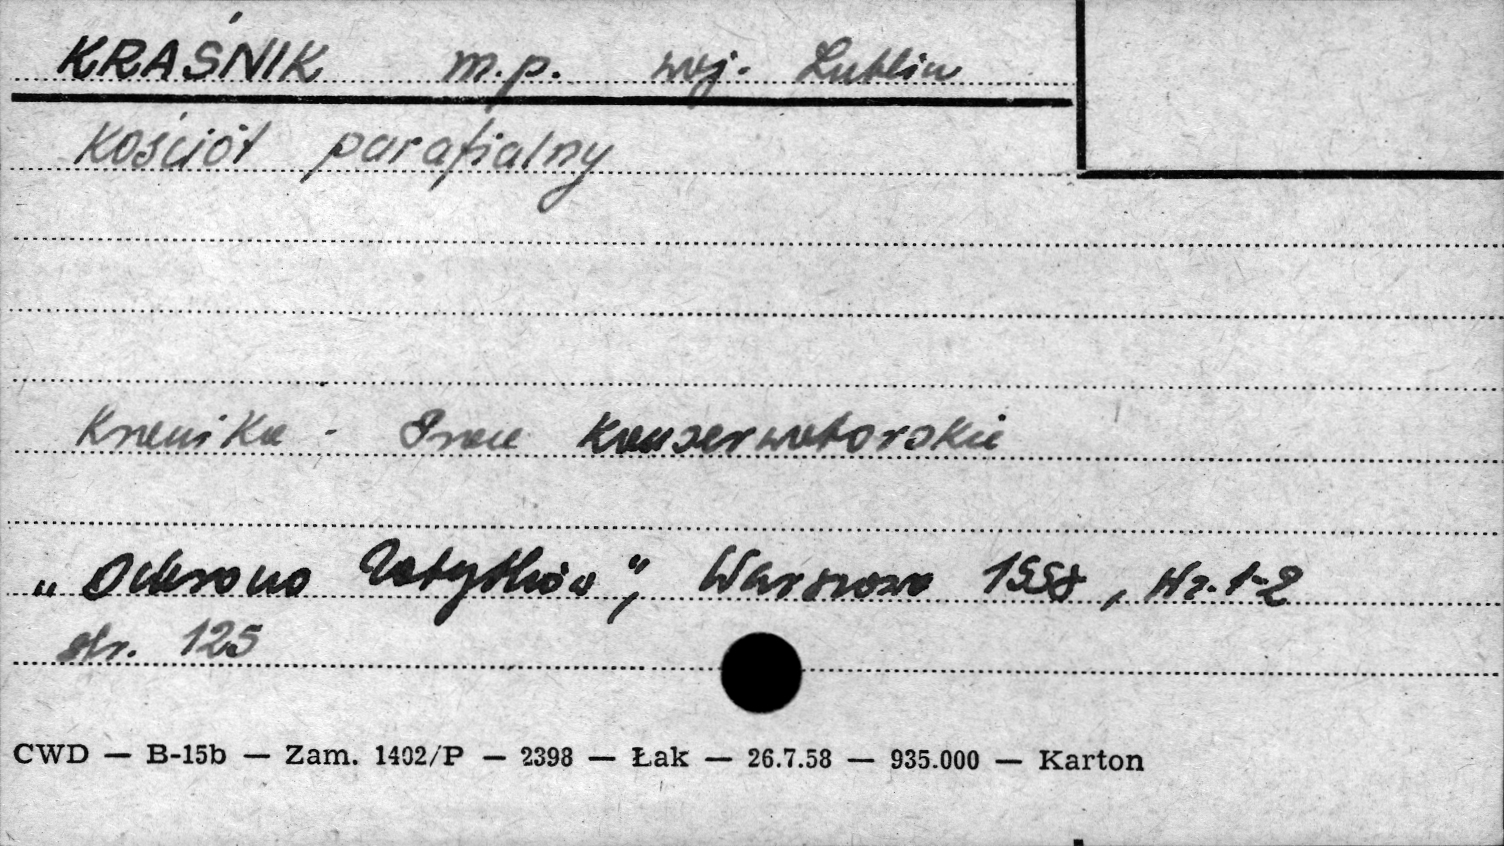 KRAŚNIK m.p. woj. Lublin
Kościół parafialny
Kronika - Prace konserwatorskie
„Ochrona Zabytków”, Warszawa 1958, Nr. 1-2
str. 125
CWD — B-15b — Zam. 1402/P — 2398 — Łak — 26.7.58 — 935.000 — Karton